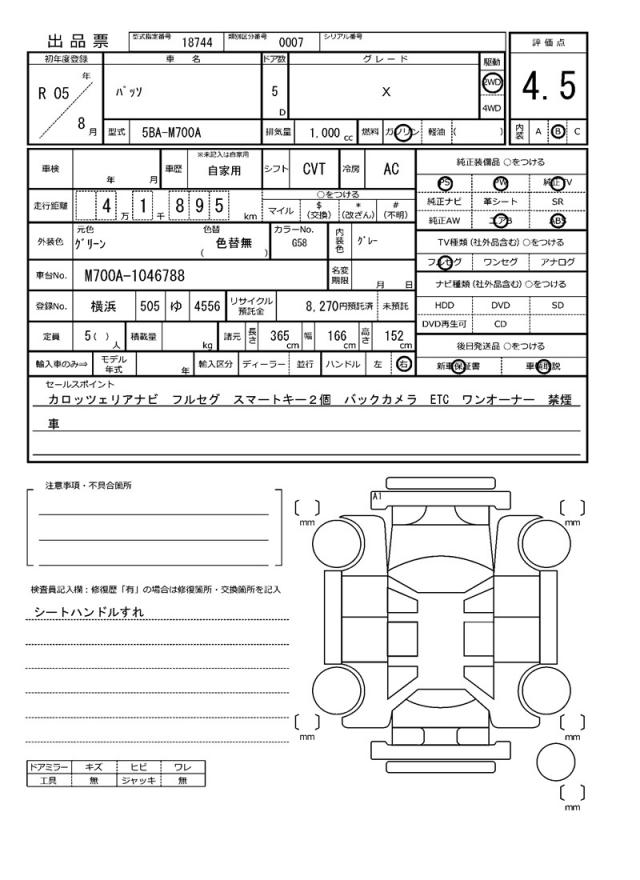 出品票 型式指定番号 18744 類別区分番号 0007 シリアル番号
初年度登録 車名 ドア数 グレード 駆動 評価点
R 05 年 8 月 パッソ 5 D X 2WD 4WD 4.5
型式 5BA-M700A 排気量 1.000 cc 燃料 ガソリン 軽油 ( ) 内装 A B C
車検 年 月 車歴 ※未記入は自家用 自家用 シフト CVT 冷房 AC
走行距離 4 万 1 千 8 9 5 km ○をつける
マイル $ (交換) * (改ざん) # (不明)
外装色 元色 グリーン 色替 色替無 ( ) カラーNo. G58 内装色 グレー
車台No. M700A-1046788 名変期限 月 日
登録No. 横浜 505 ゆ 4556 リサイクル預託金 8,270円預託済 未預託
定員 5( ) 人 積載量 kg 諸元 長さ 365 cm 幅 166 cm 高さ 152 cm
輸入車のみ⇒ モデル年式 年 輸入区分 ディーラー 並行 ハンドル 左 右
純正装備品 ○をつける
PS PW 純正TV
純正ナビ 革シート SR
純正AW エアB ABS
TV種類(社外品含む)○をつける
フルセグ ワンセグ アナログ
ナビ種類(社外品含む)○をつける
HDD DVD SD
DVD再生可 CD
後日発送品 ○をつける
新車保証書 車輌取説
セールスポイント
カロッツェリアナビ フルセグ スマートキー2個 バックカメラ ETC ワンオーナー 禁煙
車
注意事項・不具合箇所
検査員記入欄:修復歴「有」の場合は修復箇所・交換箇所を記入
シートハンドルすれ
ドアミラー キズ ヒビ ワレ
工具 無 ジャッキ 無
A1
mm mm
mm mm
mm